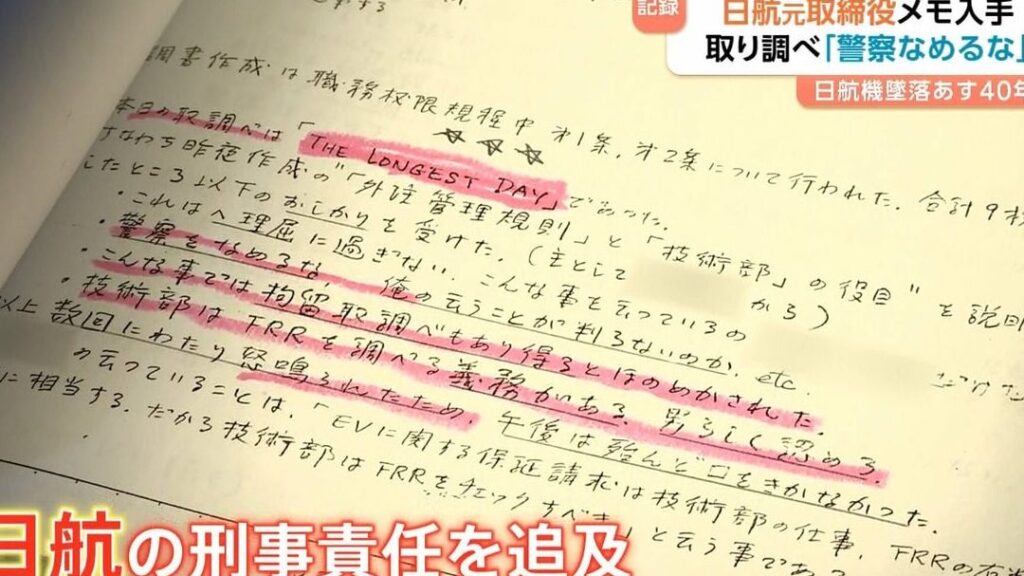 記録
日航元取締役メモ入手
取り調べ「警察なめるな」
日航機墜落あす40年
調書作成は職務权限規程中オ1条、オ2条について行われた。合計9枚
本日の取調べは「THE LONGEST DAY」であった。
すなわち昨夜作成の"「外注管理規則」と「技術部」の役目"を説明
したところ以下のおしかりを受けた。(主として から)
・これはヘ理屈に過ぎない. こんな事を云っているの
・警察をなめるな, 俺の云うことが判らないのか. etc
・こんな事では拘留取調べもあり得るとほのめかされた.
・技術部はFRRを調べる義務がある. 男らしく認めろ.
以上数回にわたり怒鳴られたため, 午後は殆んど口をきかなかった.
の云っていることは.「EVに関する保証請求は技術部の仕事. FRRの
に相当する. だから技術部はFRRをチェックすべき」と云う事であ
日航の刑事責任を追及